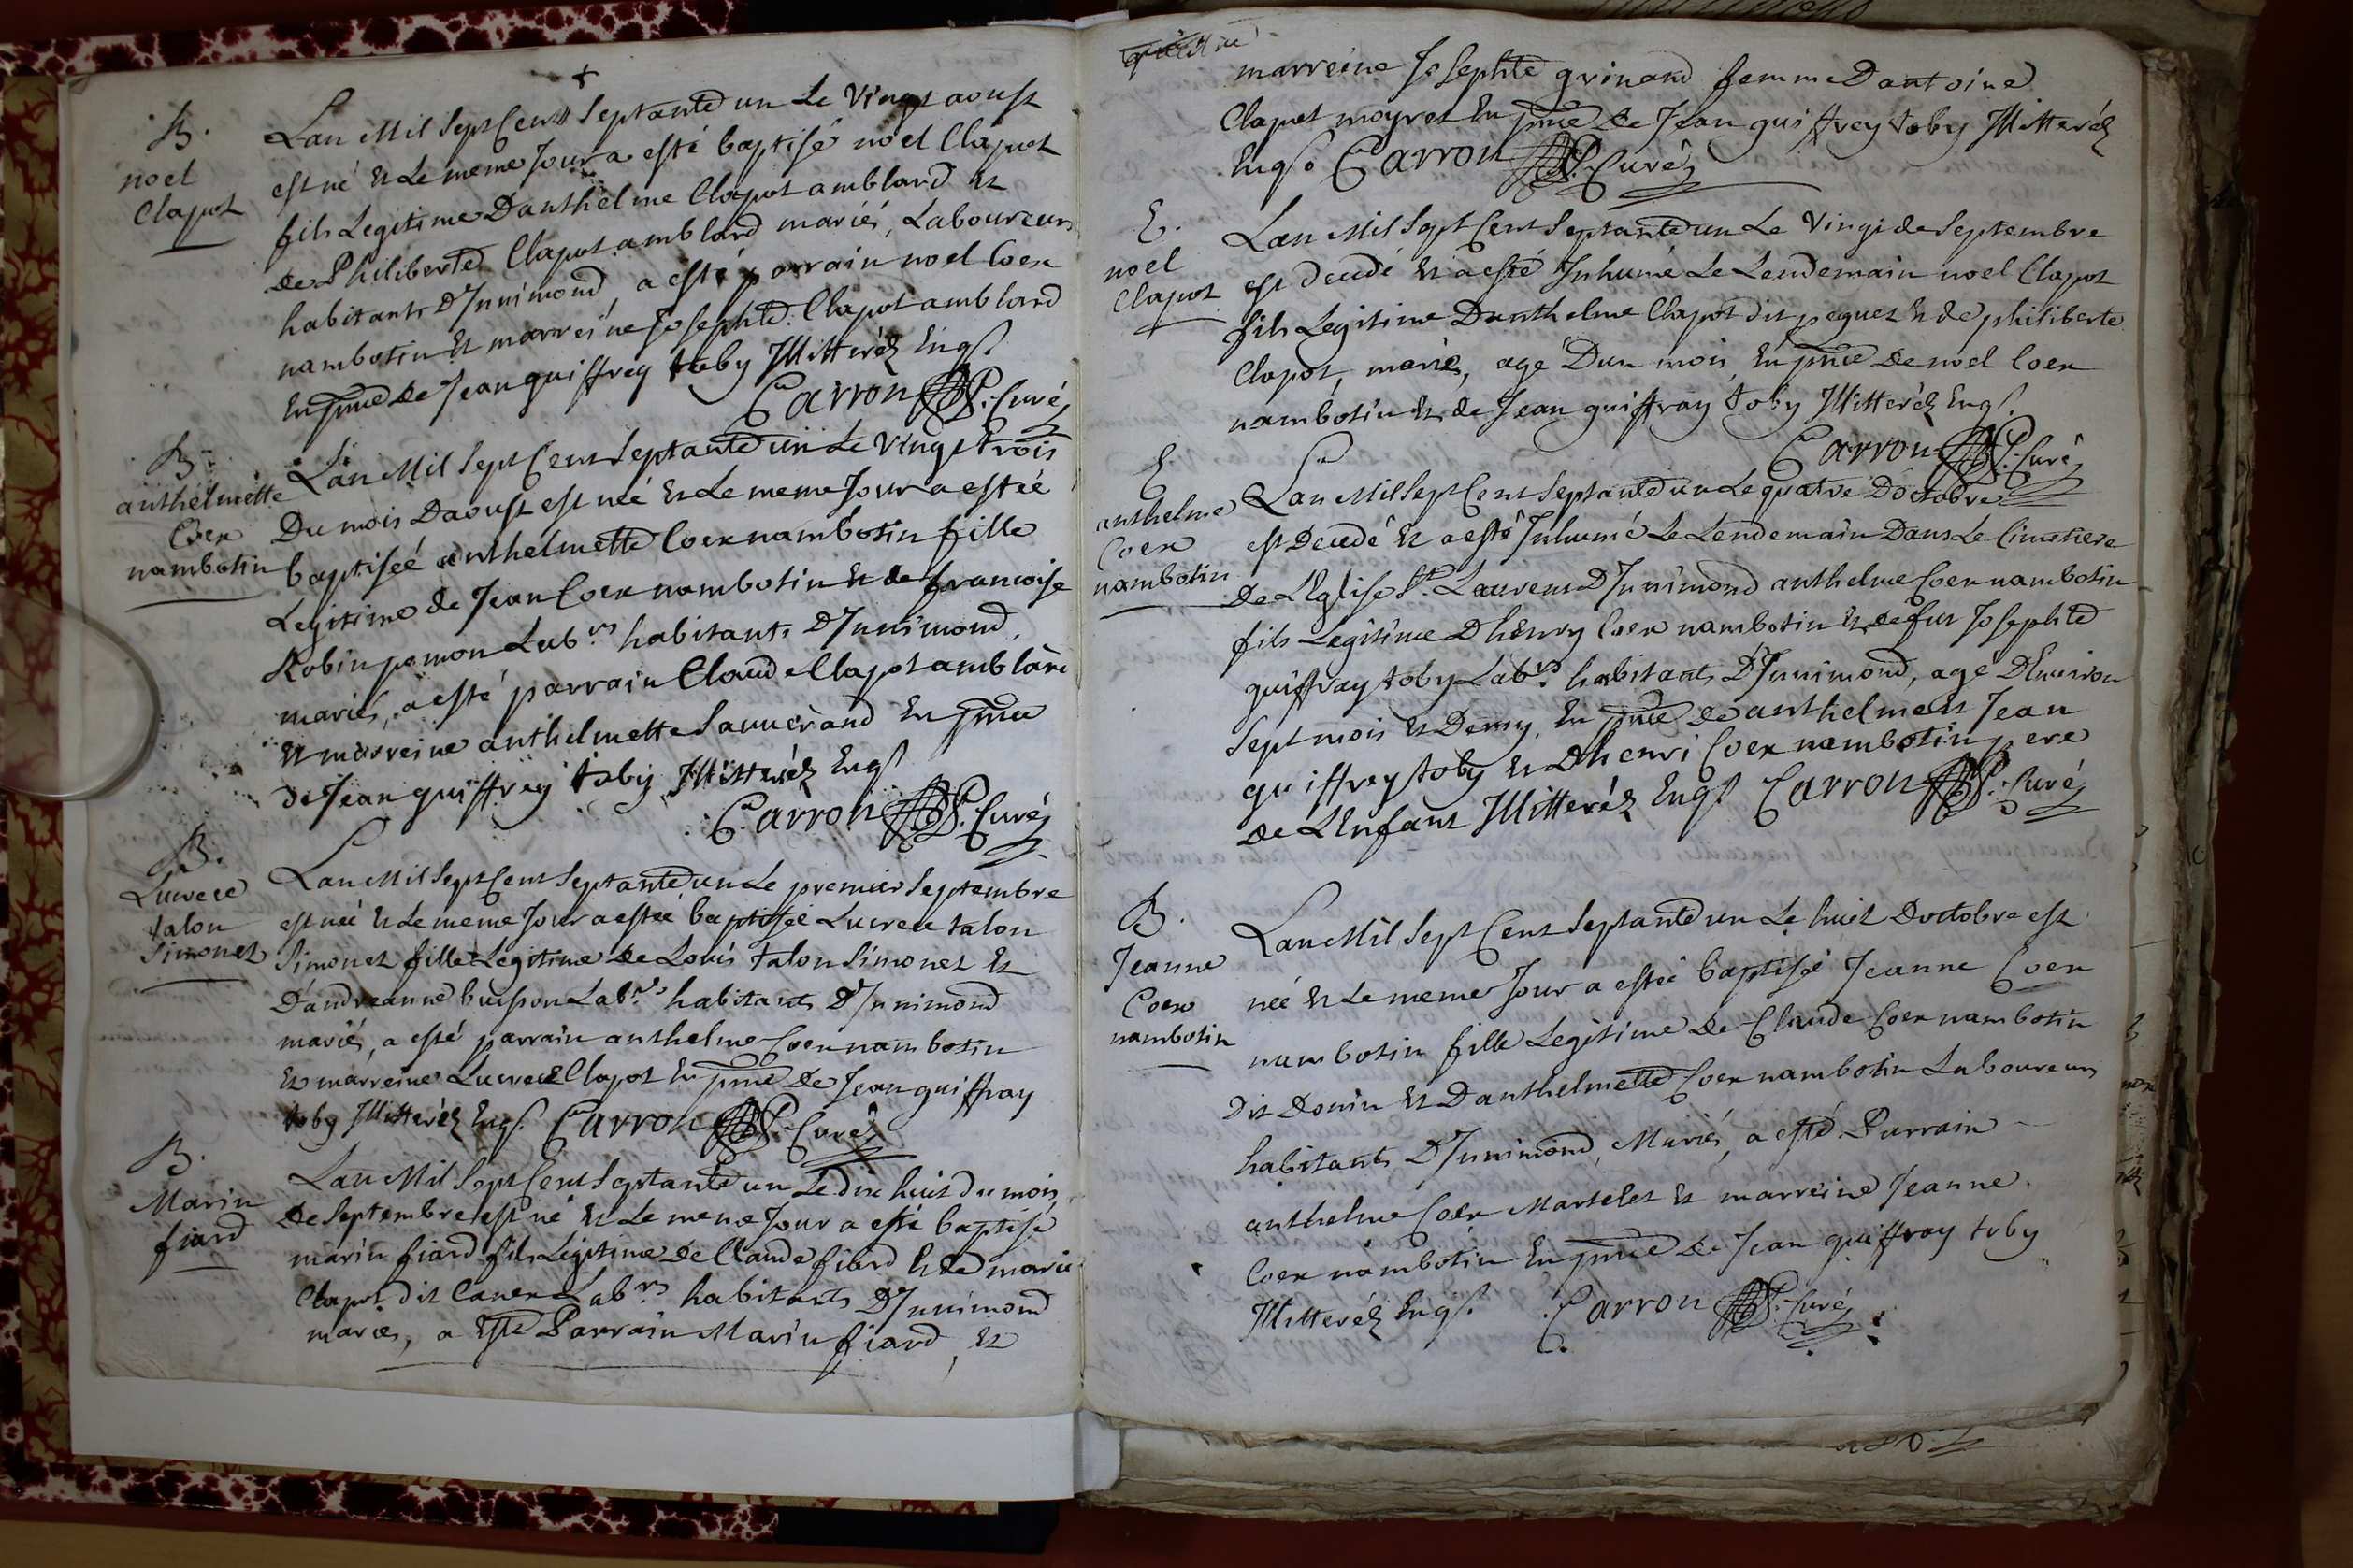 B.
noel
Clapot
Lan Mil Sept Cent Septante un Le Vingt aoust
est né Et Le meme Jour a esté baptisé noel Clapot
fils Legitime Danthelme Clapot amblard Et
de Philiberte Clapot amblard mariés, Laboureurs
habitants D'Innimond, a esté parrain noel Coex
nambotin Et marreine Josephte Clapot amblard
En pnce de Jean guiffrey toby Illitteréz Enqs
Carron P. Curé
B.
anthelmette
Coex
nambotin
Lan Mil Sept Cent Septante un Le Vingt trois
Du mois Daoust est neé Et Le meme Jour a estéé
baptiséé anthelmette Coex nambotin fille
Legitime de Jean Coex nambotin Et de francoise
Robin pomon Labrs habitants D'Innimond,
mariés, a esté parrain Claude Clapot amblard
Et marreine anthelmette Sauuerand En pnce
de Jean guiffrey toby Illitteréz Enqs
Carron P. Curé
B.
Lucrece
talon
Simonet
Lan Mil Sept Cent Septante un Le premier Septembre
est neé Et Le meme Jour a estéé baptiséé Lucrece talon
Simonet fille Legitime de Loüis talon Simonet Et
D'andreanne buisson Labrs habitants D'Innimond
mariés, a esté parrain anthelme Coex nambotin
Et marreine Lucrece Clapot En pnce De Jean guiffray
toby Illitteréz Enqs. Carron P. Curé
B.
Marin
fiard
Lan Mil Sept Cent Septante un Le dix huit du mois
de Septembre est né Et Le meme Jour a esté baptisé
marin fiard fils Legitime de Claude fiard Et de marie
Clapot dit Canex Labrs habitants D'Innimond
mariés, a Esté Parrain Marin fiard, Et
marreine Josephte grinand femme Dantoine
Clapot moyret En pnce de Jean guiffrey toby Illitteréz
Enqs Carron P. Curé
E.
noel
Clapot
Lan Mil Sept Cent Septante un Le Vingt de Septembre
est decedé Et a esté Inhumé Le Lendemain noel Clapot
fils Legitime Danthelme Clapot dit peguet Et de philiberte
Clapot, mariés, agé Dun mois, En pnce de noel Coex
nambotin Et de Jean guiffray toby Illitteréz Enqs.
Carron P. Curé
E
anthelme
Coex
nambotin
Lan Mil Sept Cent Septante un Le quatre Doctobre
est Decedé Et a esté Inhumé Le Lendemain Dans Le Cimetiere
de L'Eglise St. Laurent D'Innimond anthelme Coex nambotin
fils Legitime Dhenry Coex nambotin Et de fut Josephte
guiffray toby Labrs habitants D'Innimond, agé DEnviron
Sept mois Et Demy, En pnce de anthelme Et Jean
guiffrey toby Et Dhenri Coex nambotin pere
de L'Enfant Illitteréz Enqs Carron P. Curé
B.
Jeanne
Coex
nambotin
Lan Mil Sept Cent Septante un Le huit Doctobre est
neé Et Le meme Jour a estéé baptiséé Jeanne Coex
nambotin fille Legitime de Claude Coex nambotin
dit Doüin Et Danthelmette Coex nambotin Laboureurs
habitants D'Innimond, Mariés, a esté Parrain
anthelme Coex Martelet Et marreine Jeanne
Coex nambotin En pnce de Jean guiffray toby
Illitteréz Enqs. Carron P. Curé